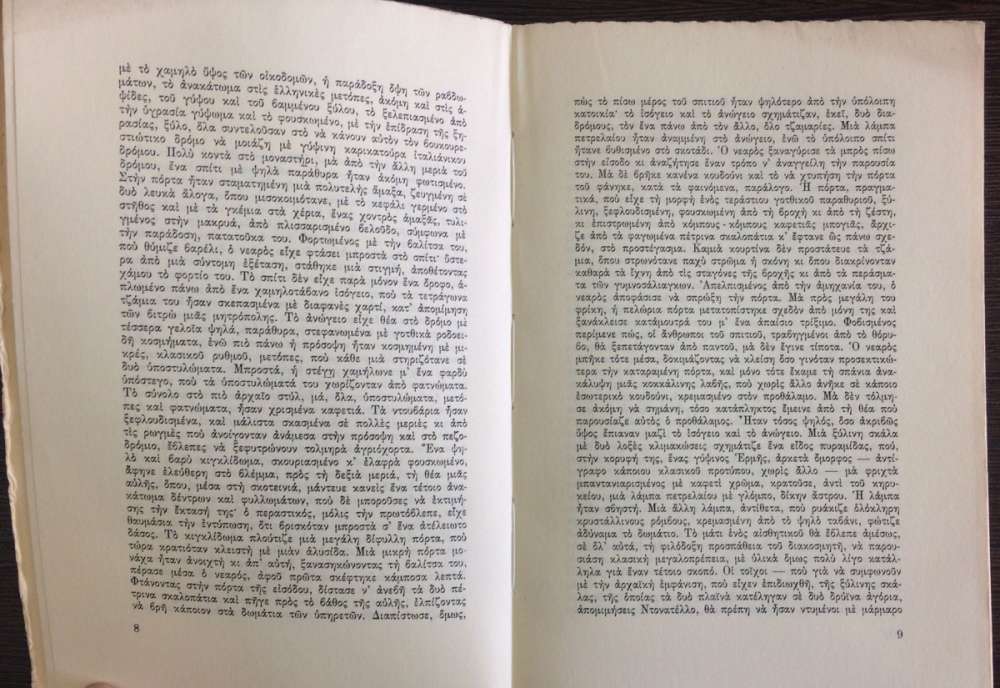 μὲ τὸ χαμηλὸ ὕψος τῶν οἰκοδομῶν, ἡ παράδοξη ὄψη τῶν ραβδω-
μάτων, τὸ ἀνακάτωμα στὶς ἑλληνικὲς μετόπες, ἀκόμη καὶ στὶς ἁ-
ψίδες, τοῦ γύψου καὶ τοῦ βαμμένου ξύλου, τὸ ξελεπιασμένο ἀπὸ
τὴν ὑγρασία γύψωμα καὶ τὸ φουσκωμένο, μὲ τὴν ἐπίδραση τῆς ξη-
ρασίας, ξύλο, ὅλα συντελοῦσαν στὸ νὰ κάνουν αὐτὸν τὸν βουκουρε-
στιώτικο δρόμο νὰ μοιάζη μὲ γύψινη καρικατούρα ἰταλιάνικου
δρόμου. Πολὺ κοντὰ στὸ μοναστήρι, μὰ ἀπὸ τὴν ἄλλη μεριὰ τοῦ
δρόμου, ἕνα σπίτι μὲ ψηλὰ παράθυρα ἦταν ἀκόμη φωτισμένο.
Στὴν πόρτα ἦταν σταματημένη μιὰ πολυτελὴς ἅμαξα, ζευγμένη σὲ
δυὸ λευκὰ ἄλογα, ὅπου μεσοκοιμότανε, μὲ τὸ κεφάλι γερμένο στὸ
στῆθος καὶ μὲ τὰ γκέμια στὰ χέρια, ἕνας χοντρὸς ἁμαξάς, τυλι-
γμένος στὴν μακρυά, ἀπὸ πλισσαρισμένο βελοῦδο, σύμφωνα μὲ
τὴν παράδοση, πατατοῦκα του. Φορτωμένος μὲ τὴν βαλίτσα του,
ποὺ θύμιζε βαρέλι, ὁ νεαρὸς εἶχε φτάσει μπροστὰ στὸ σπίτι· ὕστε-
ρα ἀπὸ μιὰ σύντομη ἐξέταση, στάθηκε μιὰ στιγμή, ἀποθέτοντας
χάμου τὸ φορτίο του. Τὸ σπίτι δὲν εἶχε παρὰ μόνον ἕνα ὄροφο, ἁ-
πλωμένο πάνω ἀπὸ ἕνα χαμηλοτάβανο ἰσόγειο, ποὺ τὰ τετράγωνα
τζάμια του ἦσαν σκεπασμένα μὲ διαφανὲς χαρτί, κατ' ἀπομίμηση
τῶν βιτρὼ μιᾶς μητρόπολης. Τὸ ἀνώγειο εἶχε θέα στὸ δρόμο μὲ
τέσσερα γελοῖα ψηλά, παράθυρα, στεφανωμένα μὲ γοτθικὰ ροδοει-
δῆ κοσμήματα, ἐνῶ πιὸ πάνω ἡ πρόσοψη ἦταν κοσμημένη μὲ μι-
κρές, κλασικοῦ ρυθμοῦ, μετόπες, ποὺ κάθε μιὰ στηριζότανε σὲ
δυὸ ὑποστυλώματα. Μπροστά, ἡ στέγη χαμήλωνε μ' ἕνα φαρδὺ
ὑπόστεγο, ποὺ τὰ ὑποστυλώματά του χωρίζονταν ἀπὸ φατνώματα.
Τὸ σύνολο στὸ πιὸ ἀρχαῖο στύλ, μά, ὅλα, ὑποστυλώματα, μετό-
πες καὶ φατνώματα, ἦσαν χρισμένα καφετιά. Τὰ ντουβάρια ἦσαν
ξεφλουδισμένα, καὶ μάλιστα σκασμένα σὲ πολλὲς μεριὲς κι ἀπὸ
τὶς ρωγμὲς ποὺ ἀνοίγονταν ἀνάμεσα στὴν πρόσοψη καὶ στὸ πεζο-
δρόμιο, ἔβλεπες νὰ ξεφυτρώνουν τολμηρὰ ἀγριόχορτα. Ἕνα ψη-
λὸ καὶ βαρὺ κιγκλίδωμα, σκουριασμένο κ' ἐλαφρὰ φουσκωμένο,
ἄφηνε ἐλεύθερη στὸ βλέμμα, πρὸς τὴ δεξιὰ μεριά, τὴ θέα μιᾶς
αὐλῆς, ὅπου, μέσα στὴ σκοτεινιά, μάντευε κανεὶς ἕνα τέτοιο ἀνα-
κάτωμα δέντρων καὶ φυλλωμάτων, ποὺ δὲ μποροῦσες νὰ ἐκτιμή-
σης τὴν ἔκτασή της· ὁ περαστικός, μόλις τὴν πρωτόβλεπε, εἶχε
θαυμάσια τὴν ἐντύπωση, ὅτι βρισκόταν μπροστὰ σ' ἕνα ἀτέλειωτο
δάσος. Τὸ κιγκλίδωμα πλούτιζε μιὰ μεγάλη δίφυλλη πόρτα, ποὺ
τώρα κρατιόταν κλειστὴ μὲ μιὰν ἁλυσίδα. Μιὰ μικρὴ πόρτα μο-
νάχα ἦταν ἀνοιχτὴ κι ἀπ' αὐτή, ξανασηκώνοντας τὴ βαλίτσα του,
πέρασε μέσα ὁ νεαρός, ἀφοῦ πρῶτα σκέφτηκε κάμποσα λεπτά.
Φτάνοντας στὴν πόρτα τῆς εἰσόδου, δίστασε ν' ἀνεβῆ τὰ δυὸ πέ-
τρινα σκαλοπάτια καὶ πῆγε πρὸς τὸ βάθος τῆς αὐλῆς, ἐλπίζοντας
νὰ βρῆ κάποιον στὰ δωμάτια τῶν ὑπηρετῶν. Διαπίστωσε, ὅμως,
8
πὼς τὸ πίσω μέρος τοῦ σπιτιοῦ ἦταν ψηλότερο ἀπὸ τὴν ὑπόλοιπη
κατοικία· τὸ ἰσόγειο καὶ τὸ ἀνώγειο σχημάτιζαν, ἐκεῖ, δυὸ δια-
δρόμους, τὸν ἕνα πάνω ἀπὸ τὸν ἄλλο, ὅλο τζαμαρίες. Μιὰ λάμπα
πετρελαίου ἦταν ἀναμμένη στὸ ἀνώγειο, ἐνῶ τὸ ὑπόλοιπο σπίτι
ἤτανε βυθισμένο στὸ σκοτάδι. Ὁ νεαρὸς ξαναγύρισε τὰ μπρὸς πίσω
στὴν εἴσοδο κι ἀναζήτησε ἕναν τρόπο ν' ἀναγγείλη τὴν παρουσία
του. Μὰ δὲ βρῆκε κανένα κουδούνι καὶ τὸ νὰ χτυπήση τὴν πόρτα
τοῦ φάνηκε, κατὰ τὰ φαινόμενα, παράλογο. Ἡ πόρτα, πραγμα-
τικά, ποὺ εἶχε τὴ μορφὴ ἑνὸς τεράστιου γοτθικοῦ παραθυριοῦ, ξύ-
λινη, ξεφλουδισμένη, φουσκωμένη ἀπὸ τὴ βροχὴ κι ἀπὸ τὴ ζέστη,
κι ἐπιστρωμένη ἀπὸ κόμπους - κόμπους καφετιᾶς μπογιᾶς, ἄρχι-
ζε ἀπὸ τὰ φαγωμένα πέτρινα σκαλοπάτια κ' ἔφτανε ὣς πάνω σχε-
δόν, στὸ προστέγασμα. Καμιὰ κουρτίνα δὲν προστάτευε τὰ τζά-
μια, ὅπου στρωνότανε παχὺ στρῶμα ἡ σκόνη κι ὅπου διακρίνονταν
καθαρὰ τὰ ἴχνη ἀπὸ τὶς σταγόνες τῆς βροχῆς κι ἀπὸ τὰ περάσμα-
τα τῶν γυμνοσάλιαγκων. Ἀπελπισμένος ἀπὸ τὴν ἀμηχανία του, ὁ
νεαρὸς ἀποφάσισε νὰ σπρώξη τὴν πόρτα. Μὰ πρὸς μεγάλη του
φρίκη, ἡ πελώρια πόρτα μετατοπίστηκε σχεδὸν ἀπὸ μόνη της καὶ
ξανάκλεισε κατάμουτρά του μ' ἕνα ἀπαίσιο τρίξιμο. Φοβισμένος
περίμενε πώς, οἱ ἄνθρωποι τοῦ σπιτιοῦ, τραβηγμένοι ἀπὸ τὸ θόρυ-
βο, θὰ ξεπετάγονταν ἀπὸ παντοῦ, μὰ δὲν ἔγινε τίποτα. Ὁ νεαρὸς
μπῆκε τότε μέσα, δοκιμάζοντας νὰ κλείση ὅσο γινόταν προσεκτικώ-
τερα τὴν καταραμένη πόρτα, καὶ μόνο τότε ἔκαμε τὴ σπάνια ἀνα-
κάλυψη μιᾶς κοκκάλινης λαβῆς, ποὺ χωρὶς ἄλλο ἀνῆκε σὲ κάποιο
ἐσωτερικὸ κουδούνι, κρεμασμένο στὸν προθάλαμο. Μὰ δὲν τόλμη-
σε ἀκόμη νὰ σημάνη, τόσο κατάπληκτος ἔμεινε ἀπὸ τὴ θέα ποὺ
παρουσίαζε αὐτὸς ὁ προθάλαμος. Ἦταν τόσος ψηλός, ὅσο ἀκριβῶς
ὕψος ἔπιαναν μαζὶ τὸ ἰσόγειο καὶ τὸ ἀνώγειο. Μιὰ ξύλινη σκάλα
μὲ δυὸ λοξὲς κλίμακες σχημάτιζε ἕνα εἶδος πυραμίδας, ποὺ,
στὴν κορυφή της, ἕνας, γύψινος Ἑρμῆς, ἀρκετὰ ὄμορφος — ἀντί-
γραφο κάποιου κλασικοῦ προτύπου, χωρὶς ἄλλο — μὰ φριχτὰ
μπαντανιαρισμένος μὲ καφετὶ χρῶμα, κρατοῦσε, ἀντὶ τοῦ κηρυ-
κείου, μιὰ λάμπα πετρελαίου μὲ γλόμπο, δίκην ἄστρου. Ἡ λάμπα
ἦταν σβηστή. Μιὰ ἄλλη λάμπα, ἀντίθετα, ποὺ ρυάκιζε ὁλόκληρη
κρυστάλλινους ρόμβους, κρεμασμένη ἀπὸ τὸ ψηλὸ ταβάνι, φώτιζε
ἀδύναμα τὸ δωμάτιο. Τὸ μάτι ἑνὸς αἰσθητικοῦ θὰ ἔβλεπε ἀμέσως,
σὲ ὅλ' αὐτά, τὴ φιλόδοξη προσπάθεια τοῦ διακοσμητῆ, νὰ παρου-
σιάση κλασικὴ μεγαλοπρέπεια, μὲ ὑλικὰ ὅμως πολὺ λίγο κατάλ-
ληλα γιὰ ἕναν τέτοιο σκοπό. Οἱ τοῖχοι — ποὺ γιὰ νὰ συμφωνοῦν
μὲ τὴν ἀρχαϊκὴ ἐμφάνιση, ποὺ εἶχεν ἐπιδιωχθῆ, τῆς ξύλινης σκά-
λας, τῆς ὁποίας τὰ δυὸ πλαϊνὰ κατέληγαν σὲ δυὸ δρύϊνα ἀγόρια,
ἀπομιμήσεις Ντονατέλλο, θὰ πρέπη νὰ ἦσαν ντυμένοι μὲ μάρμαρο
9